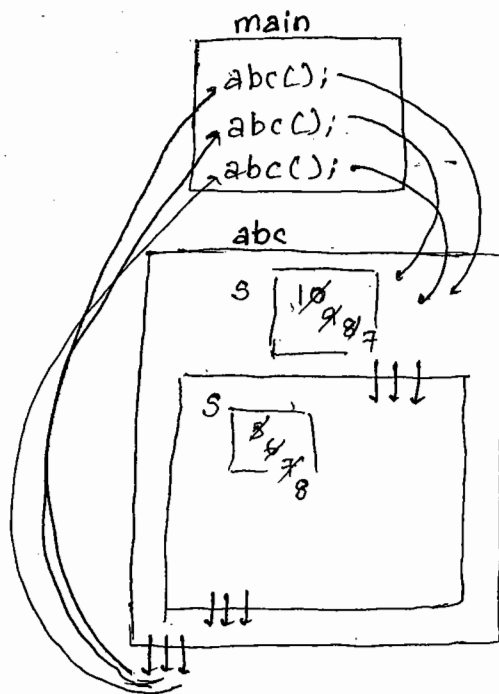 main
abc();
abc();
abc();
abc
S
10
9 8 7
S
5
6
7
8